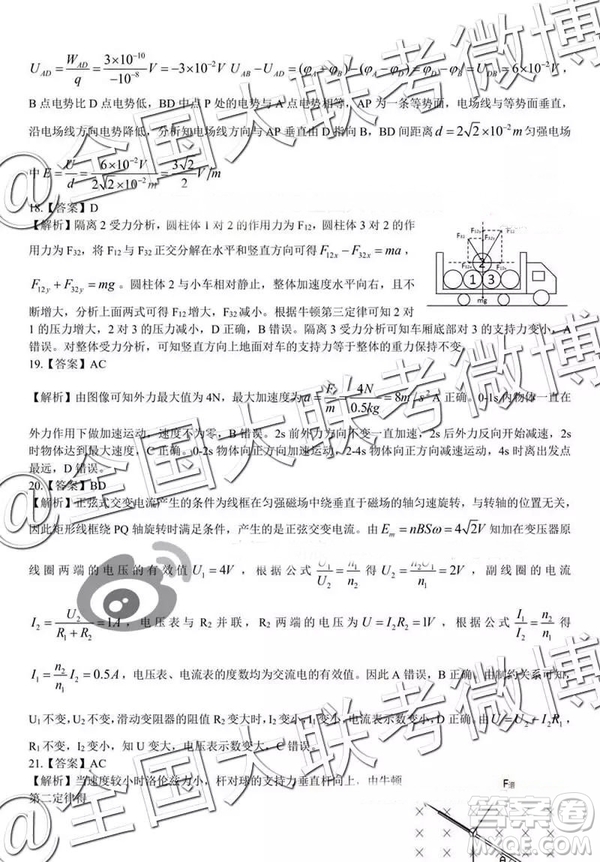 U_AD = W_AD/q = 3×10^-10/-10^-8 V = -3×10^-2 V U_AB - U_AD = (φ_A - φ_B) - (φ_A - φ_D) = φ_D - φ_B = U_DB = 6×10^-2 V，
B 点电势比 D 点电势低，BD 中点 P 处的电势与 A 点电势相等，AP 为一条等势面，电场线与等势面垂直，
沿电场线方向电势降低，分析知电场线与 AP 垂直由 D 指向 B，BD 间距离 d = 2√2×10^-2 m 匀强电场
中 E = U/d = 6×10^-2 V/2√2×10^-2 m = 3√2/2 V/m
18.【答案】D
【解析】隔离 2 受力分析，圆柱体 1 对 2 的作用力为 F12，圆柱体 3 对 2 的作用
力为 F32，将 F12 与 F32 正交分解在水平和竖直方向可得 F12x - F32x = ma，
F12y + F32y = mg。圆柱体与小车相对静止，整体加速度水平向右，且不
断增大，分析上面两式可得 F12 增大，F32 减小。根据牛顿第三定律可知 2 对
1 的压力增大，2 对 3 的压力减小，D 正确，B 错误。隔离 3 受力分析可知车厢底部对 3 的支持力变小，A
错误。对整体受力分析，竖直方向上地面对车的支持力等于整体的重力保持不变
19.【答案】AC
【解析】由图像可知外力最大值为 4N，最大加速度为 a = F/m = 4N/0.5kg = 8m/s² A 正确。0-1s 内物体一直在
外力作用下做加速运动，速度不为零，B 错误。2s 前外力方向不变一直加速，2s 后外力反向开始减速，2s
时物体达到最大速度，C 正确。0-2s 物体向正方向加速运动，2-4s 物体向正方向减速运动，4s 时离出发点
最远，D 错误。
20.【答案】BD
【解析】正弦式交变电流产生的条件为线框在匀强磁场中绕垂直于磁场的轴匀速旋转，与转轴的位置无关，
因此矩形线框绕 PQ 轴旋转时满足条件，产生的是正弦交变电流。由 E_m = nBSω = 4√2V 知加在变压器原
线圈两端的电压的有效值 U1 = 4V，根据公式 U1/U2 = n1/n2 得 U2 = n2U1/n1 = 2V，副线圈的电流
I2 = U2/R1+R2 = 1A，电压表与 R2 并联，R2 两端的电压为 U = I2R2 = 1V，根据公式 I1/I2 = n2/n1 得
I1 = n2/n1 I2 = 0.5A，电压表、电流表的度数均为交流电的有效值。因为 A 错误，B 正确。由制约关系可知，
U1 不变，U2 不变，滑动变阻器的阻值 R2 变大时，I2 变小，I1 变小，电流表示数变小，D 正确。由 U2 = U + I2R1，
R1 不变，I2 变小，知 U 变大，电压表示数变大，C 错误。
21.【答案】AC
【解析】当速度较小时洛伦兹力小，杆对球的支持力垂直杆向上，由牛顿
第二定律得
F12
F32
2
1
3
mg
@全国大联考微博
答案圈